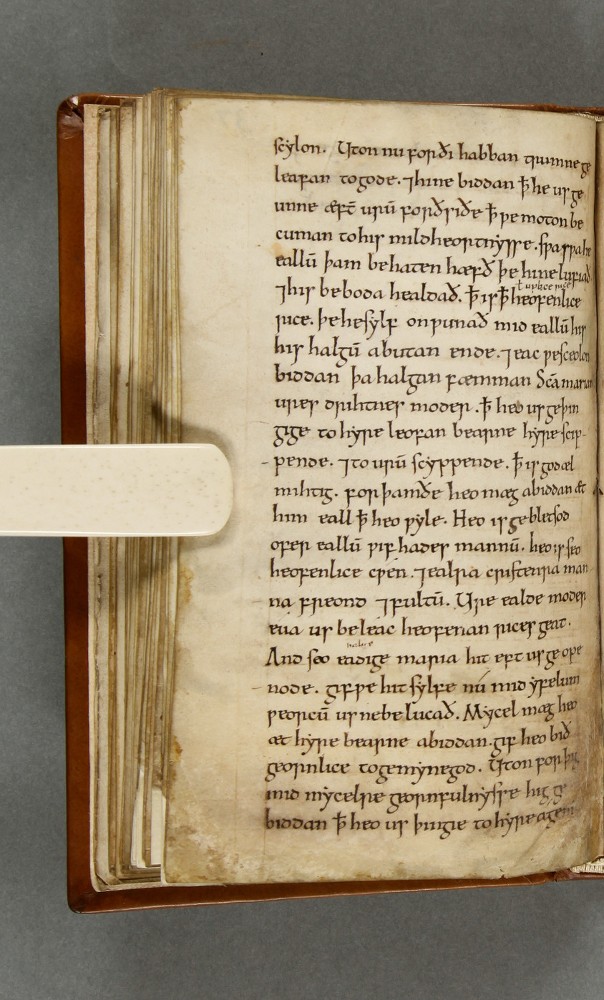 scẏlon. Uton nu forði habban trumne ge
leafan to gode. ⁊ hine biddan ꝥ he us ge
unne æft̄ urū forðsiðe ꝥ ƿe moton be
cuman to his mildheortnẏsse. sƿa sƿa he
eallū þam behaten hæfð þe hine lufiað
⁊ his beboda healdað. ꝥ is ꝥ heofenlice
rice. þe he sẏlf on ƿunað mid eallū his
his halgū abutan ende. ⁊ eac ƿe sceolon
biddan þa halgan fæmman Sc̄a marian
ures drihtnes moder. ꝥ heo us geþin
gige to hẏre leofan bearne hẏre scip-
pende. ⁊ to urū scẏppende. ꝥ is god æl
mihtig. for þamðe heo mæg abiddan æt
him eall ꝥ heo ƿẏle. Heo is gebletsod
ofer eallū ƿifhades mannū. heo is seo
heofenlice cƿen. ⁊ ealra cristenra man
na freond ⁊ fultū. Ure ealde moder
eua us beleac heofenan rices geat.
And seo eadige maria hit eft us ge ope
node. gif ƿe hit sẏlfe nu mid ẏfelum
ƿeorcū us ne belucað. Mẏcel mæg heo
æt hẏre bearne abiddan. gif heo bið
geornlice to gemẏnegod. Uton for þig
mid mẏcelre geornfulnẏsse hig ge
biddan ꝥ heo us þingie to hẏre agen